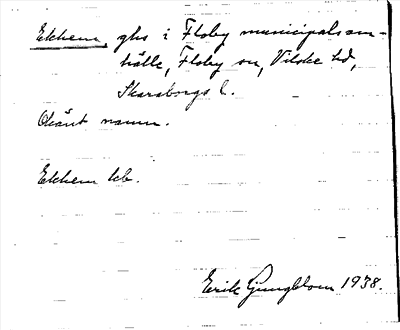 Ekhem, ghs i Floby municipalsam-
hälle, Floby sn, Vilske hd,
Skaraborgs l.
Okänt namn.
Ekhem kb.
Erik Ljungblom 1938.